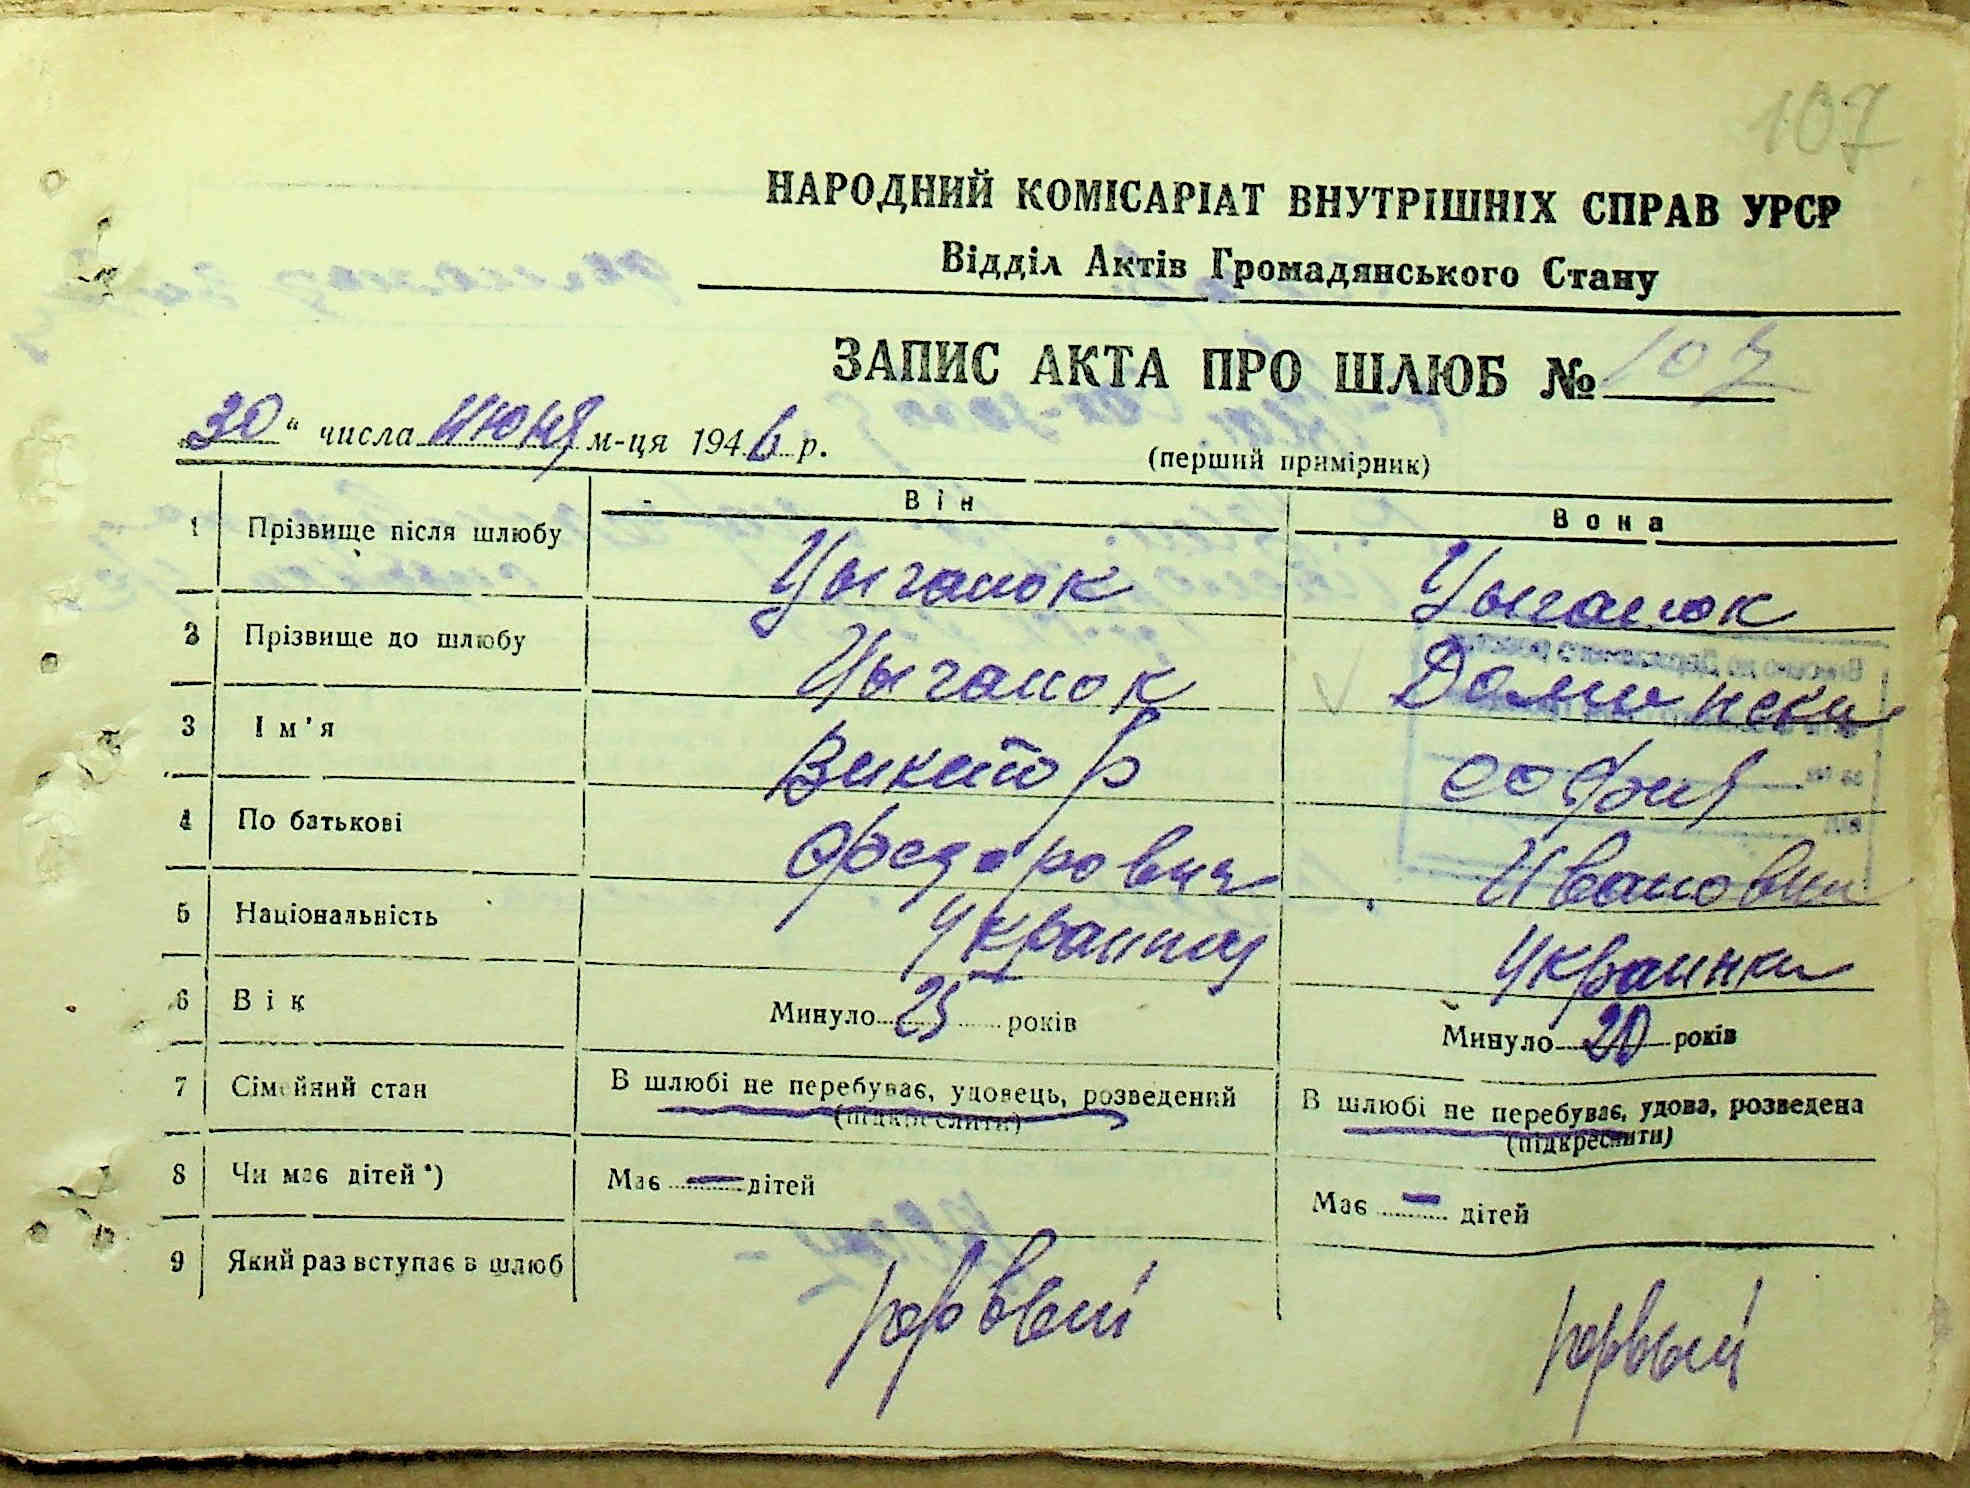 107
НАРОДНИЙ КОМІСАРІАТ ВНУТРІШНІХ СПРАВ УРСР
Відділ Актів Громадянського Стану
ЗАПИС АКТА ПРО ШЛЮБ № 107
30 " числа июня м-ця 1946 р.
(перший примірник)
Він Вона
1 Прізвище після шлюбу Цыганок Цыганок
2 Прізвище до шлюбу Цыганок
3 Ім'я Виктор София
4 По батькові Федорович Ивановна
5 Національність Украинец Украинка
6 Вік Минуло 25 років Минуло 20 років
7 Сімейний стан В шлюбі не перебуває, удовець, розведений В шлюбі не перебуває, удова, розведена
(підкреслити) (підкреслити)
8 Чи має дітей *) Має — дітей Має — дітей
9 Який раз вступає в шлюб первый первый